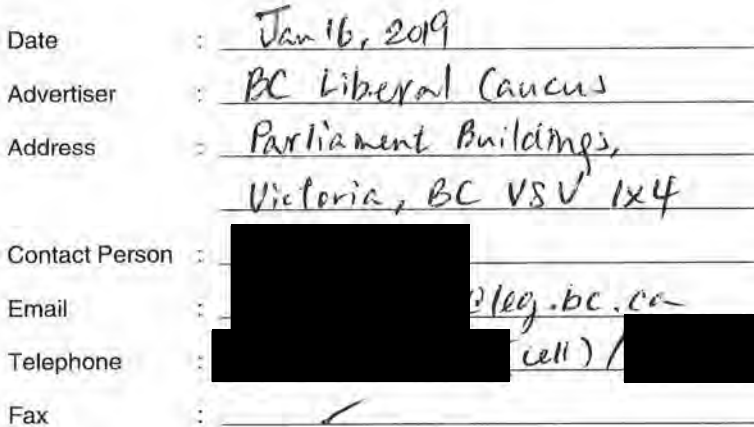 Date : Jan 16, 2019
Advertiser : BC Liberal Caucus
Address : Parliament Buildings,
Victoria, BC V8V 1x4
Contact Person :
Email : @leg.bc.ca
Telephone : (cell) /
Fax :